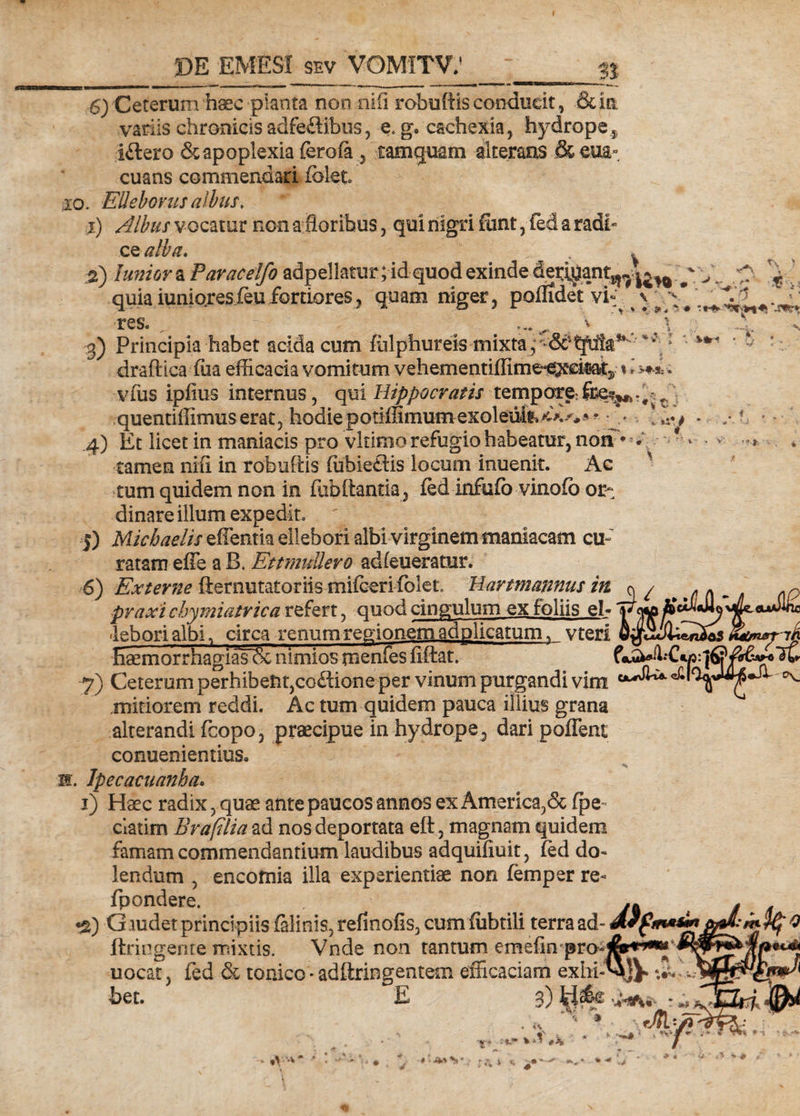 DE EMESI sev VOMITV. 33
6) Ceterum haec planta non nisi robustis conducit, & in
variis chronicis adfectibus, e. g. cachexia, hydrope,
ictero & apoplexia serosa, tamquam alterans & eua-
cuans commendari solet.
10. Elleborus albus.
1) Albus vocatur non a floribus, qui nigri sunt, sed a radi-
ce alba.
2) Iunior a Paracelso adpellatur; id quod exinde deriuant,
quia iuniores seu fortiores, quam niger, possidet vi-
res.
3) Principia habet acida cum sulphureis mixta,
drastica sua efficacia vomitum vehementissime excitat,
vsus ipsius internus, qui Hippocratis tempore fre-
quentissimus erat, hodie potissimum exoleuit.
4) Et licet in maniacis pro vltimo refugio habeatur, non
tamen nisi in robustis subiectis locum inuenit. Ac
tum quidem non in substantia, sed infuso vinoso or-
dinare illum expedit.
5) Michaelis essentia ellebori albi virginem maniacam cu-
ratam esse a B. Ettmullero adseueratur.
6) Externe sternutatoriis misceri solet. Hartmannus in
praxi chymiatrica refert, quod cingulum ex foliis el-
lebori albi, circa renum regionem adplicatum, vteri
haemorrhagias & nimios menses sistat.
7) Ceterum perhibent, coctione per vinum purgandi vim
mitiorem reddi. Ac tum quidem pauca illius grana
alterandi scopo, praecipue in hydrope, dari possent
conuenientius.
11. Ipecacuanha.
1) Haec radix, quae ante paucos annos ex America, & spe-
ciatim Brasilia ad nos deportata est, magnam quidem
famam commendantium laudibus adquisiuit, sed do-
lendum, encomia illa experientiae non semper re-
spondere.
2) Gaudet principiis salinis, resinosis, cum subtili terra ad-
stringente mixtis. Vnde non tantum emesin pro-
uocat, sed & tonico-adstringentem efficaciam exhi-
bet. E 3)